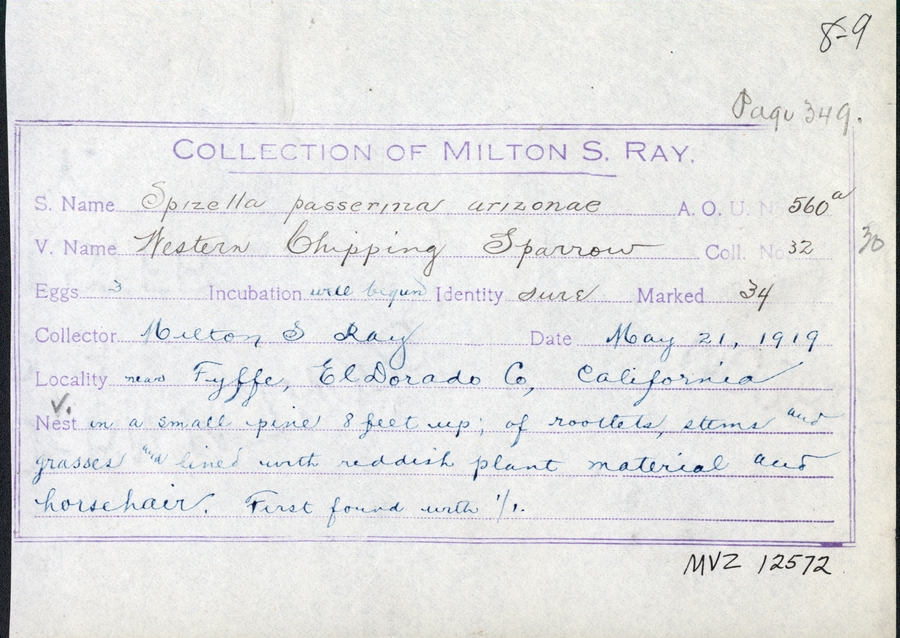 8-9
Page 349.
COLLECTION OF MILTON S. RAY.
S. Name Spizella passerina arizonae A. O. U. No 560a
V. Name Western Chipping Sparrow Coll. No 32
30
Eggs 3 Incubation well begun Identity sure Marked 3/4
Collector Milton S Ray Date May 21, 1919
Locality near Fyffe, El Dorado Co, California
V.
Nest in a small pine 8 feet up; of rootlets, stems and
grasses and lined with reddish plant material and
horsehair. First found with 1/1.
MVZ 12572